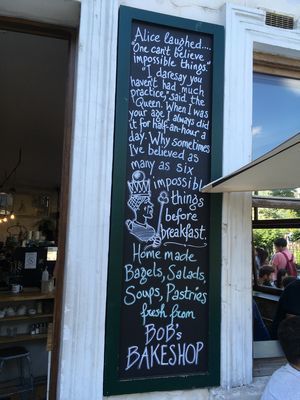 Alice laughed....
"One can't believe
impossible things."
"I daresay you
haven't had much
practice," said the
Queen. When I was
your age I always did
it for half-an-hour a
day. Why sometimes
I've believed as
many as six
impossible
things
before
breakfast.
Home made
Bagels, Salads,
Soups, Pastries
fresh from
BOB's
BAKESHOP